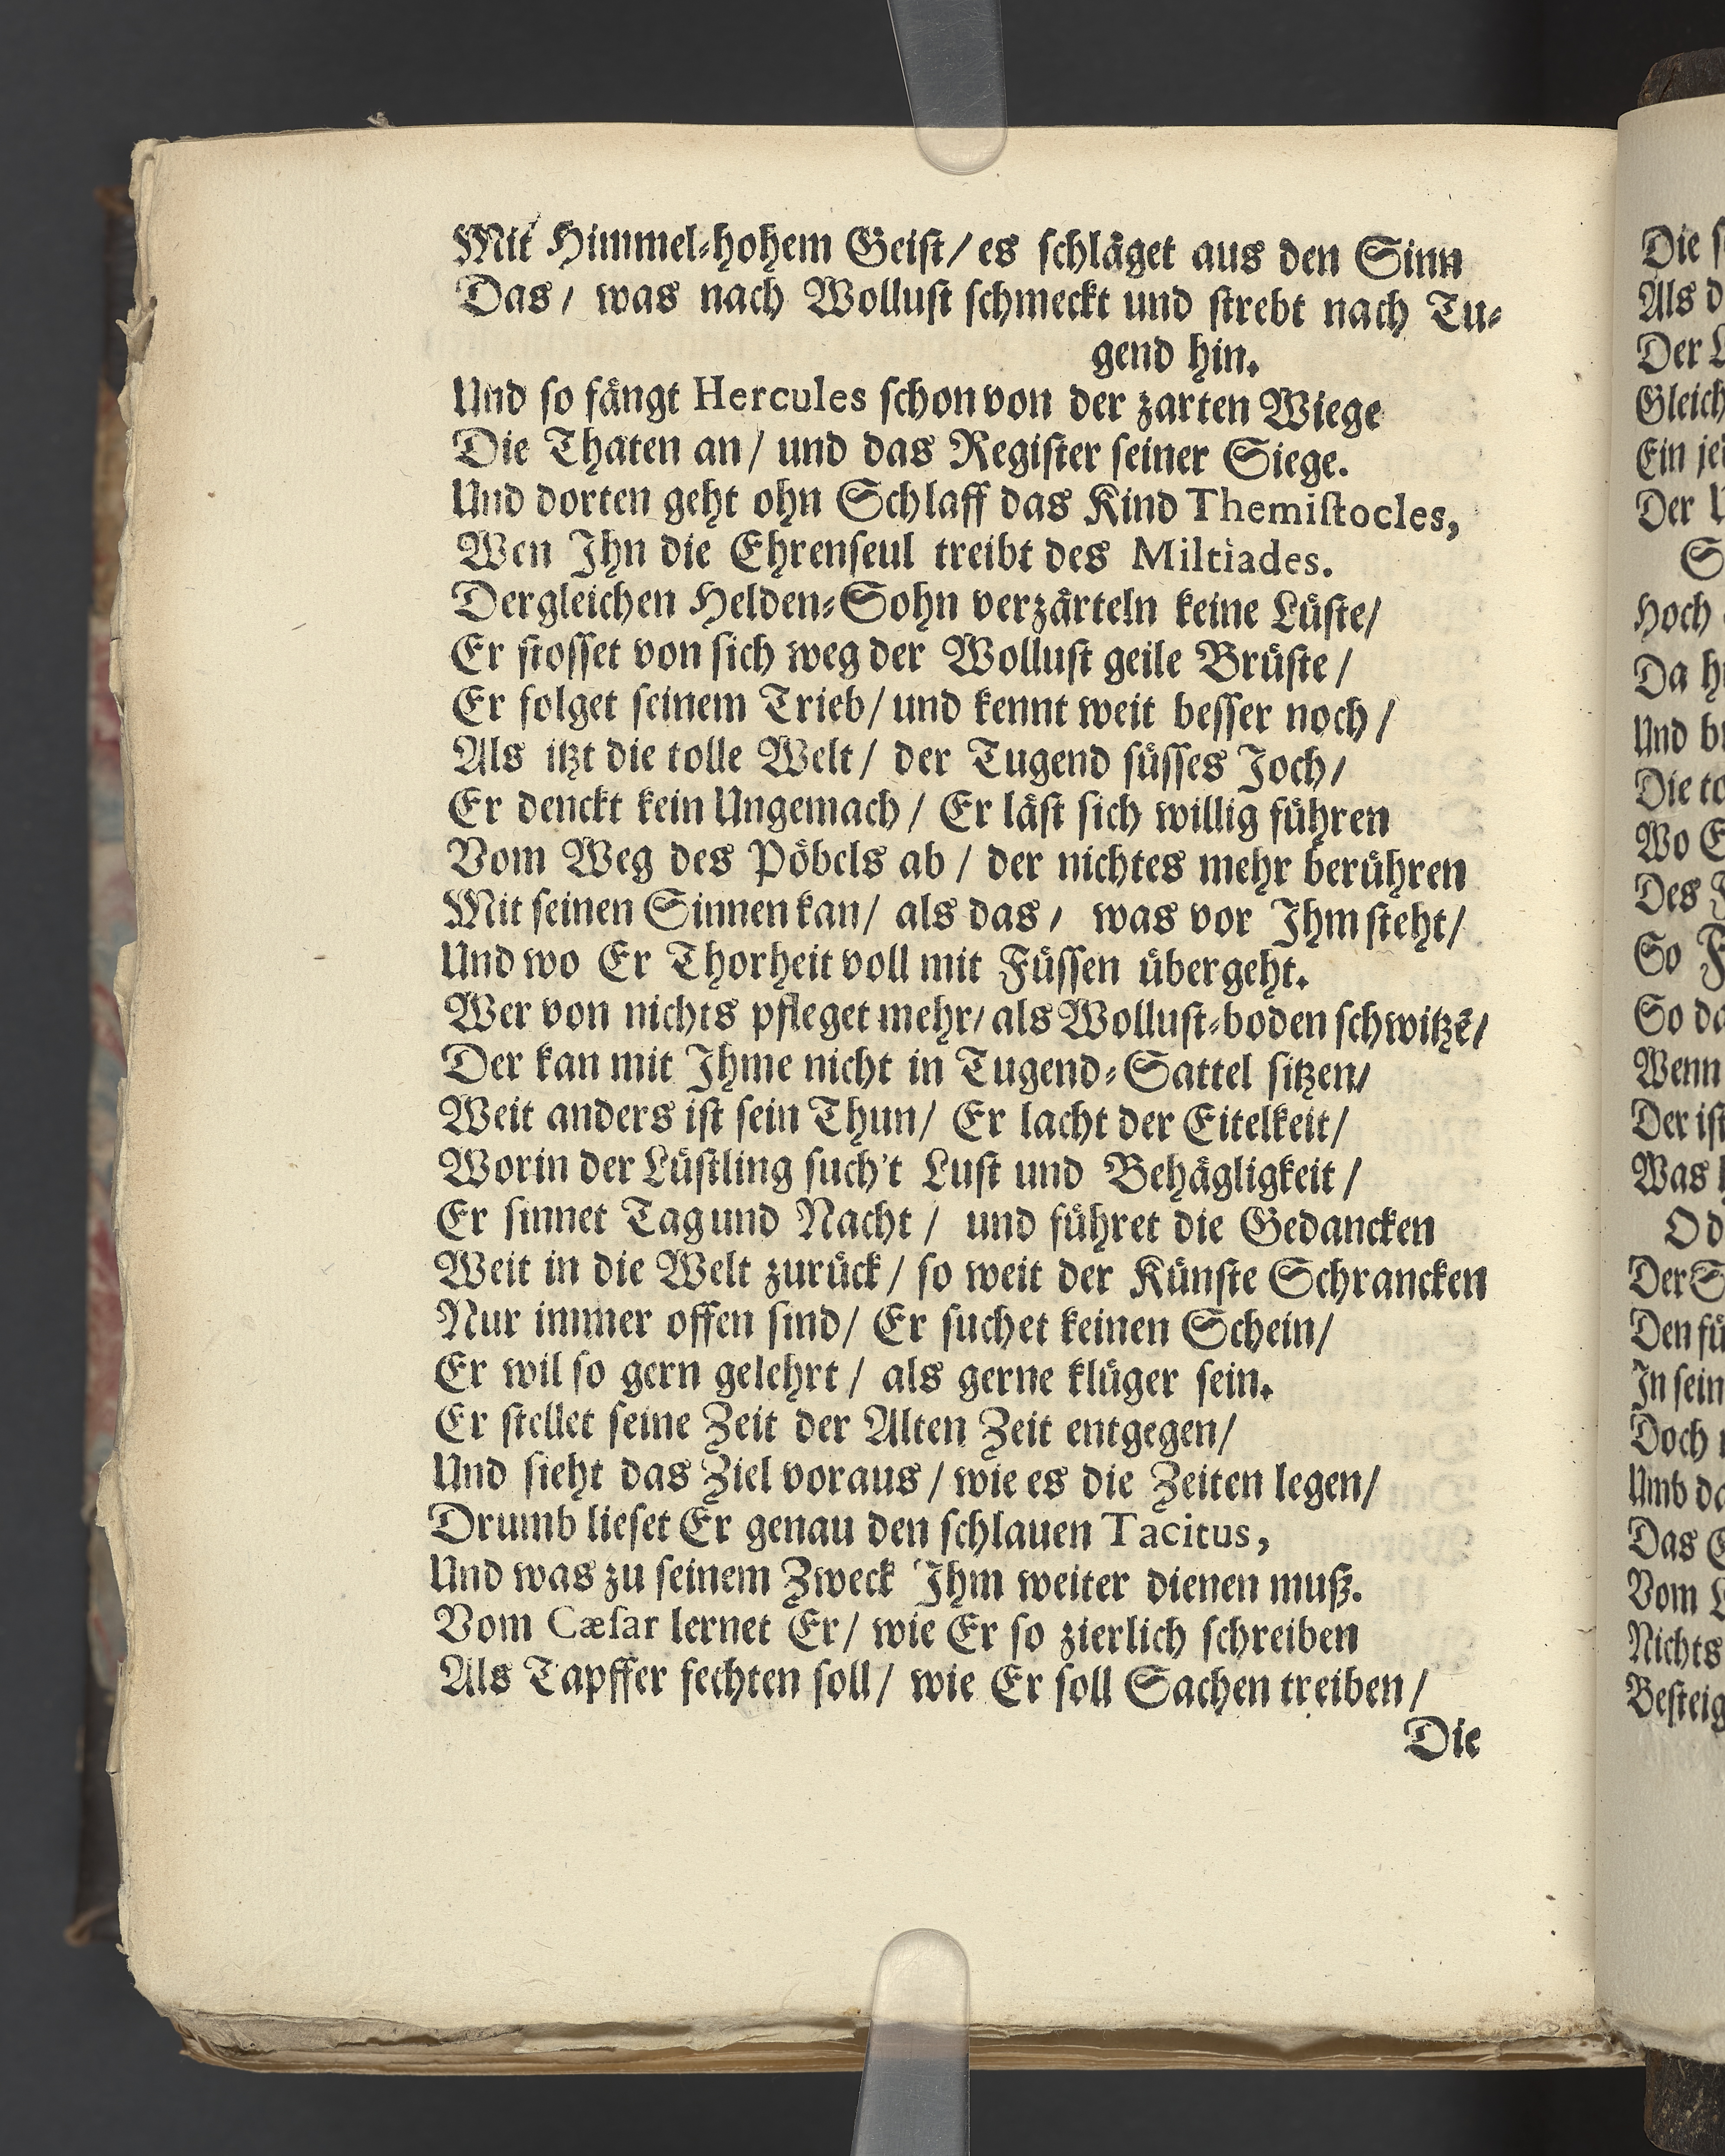 Mit Himmel-hohem Geiſt/ es ſchlåget aus den Sinn
Das/ was nach Wolluſt ſchmeckt und ſtrebt nach Tu-
gend hin.
Und ſo fångt Hercules ſchon von der zarten Wiege
Die Thaten an/ und das Regiſter ſeiner Siege.
Und dorten geht ohn Schlaff das Kind Themiſtocles,
Wen Ihn die Ehrenſeul treibt des Miltiades.
Dergleichen Helden-Sohn verzårteln keine Luͤſte/
Er ſtoſſet von ſich weg der Wolluſt geile Bruͤſte/
Er folget ſeinem Trieb/ und kennt weit beſſer noch/
Als itzt die tolle Welt/ der Tugend ſuͤſſes Joch/
Er denckt kein Ungemach/ Er låſt ſich willig fuͤhren
Vom Weg des Poͤbels ab/ der nichtes mehr beruͤhren
Mit ſeinen Sinnen kan/ als das/ was vor Ihm ſteht/
Und wo Er Thorheit voll mit Fuͤſſen uͤbergeht.
Wer von nichts pfleget mehr/ als Wolluſt-boden ſchwitzẽ/
Der kan mit Ihme nicht in Tugend-Sattel ſitzen/
Weit anders iſt ſein Thun/ Er lacht der Eitelkeit/
Worin der Luͤſtling ſuch't Luſt und Behågligkeit/
Er ſinnet Tag und Nacht/ und fuͤhret die Gedancken
Weit in die Welt zuruͤck/ ſo weit der Kuͤnſte Schrancken
Nur immer offen ſind/ Er ſuchet keinen Schein/
Er wil ſo gern gelehrt/ als gerne kluͤger ſein.
Er ſtellet ſeine Zeit der Alten Zeit entgegen/
Und ſieht das Ziel voraus/ wie es die Zeiten legen/
Drumb lieſet Er genau den ſchlauen Tacitus,
Und was zu ſeinem Zweck Ihm weiter dienen muß.
Vom Cæſar lernet Er/ wie Er ſo zierlich ſchreiben
Als Tapffer fechten ſoll/ wie Er ſoll Sachen treiben/
Die
Die
Als
Der
Gleich
Ein
Der
Hoch
Da
Und
Die
Wo
Des
So
So
Wenn
Der iſt
Was
O
Der
Den
In ſein
Doch
Umb
Das
Vom
Nichts